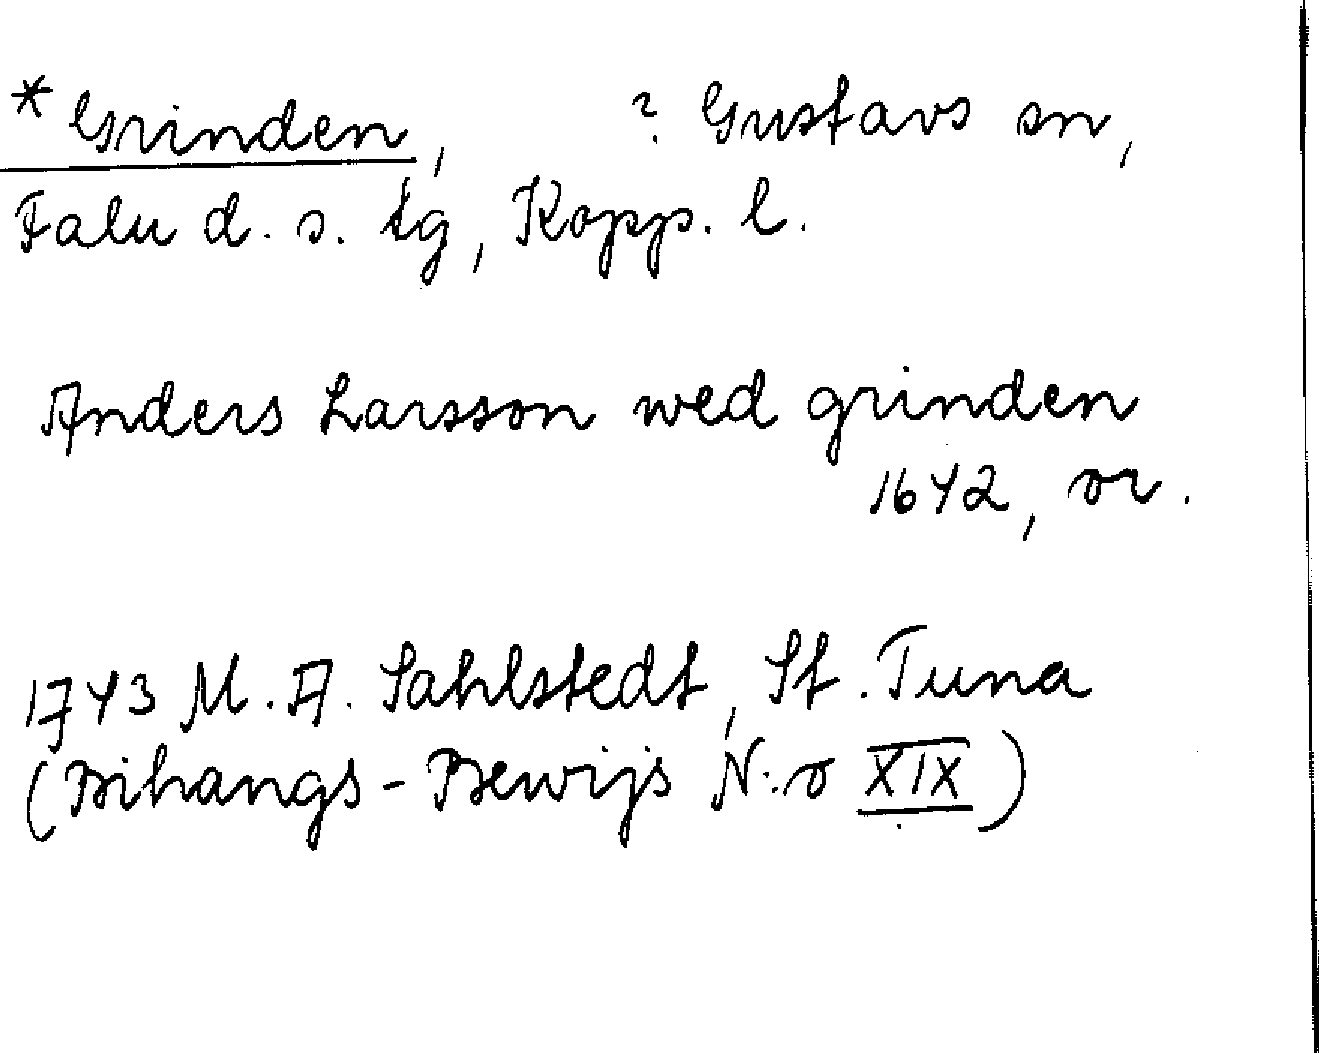 * Grinden, ? Gustavs sn,
Falu d. s. tg, Kopp. l.
Anders Larsson wed grinden
1642, or.
1743 M. A. Sahlstedt, St. Tuna
(Bihangs-Bewijs N:o XIX)